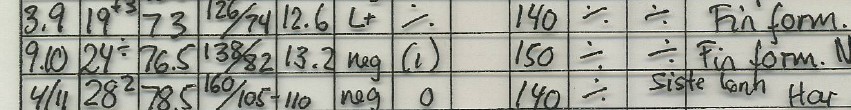 3.9 19+3 73 126/74 12.6 L+ ÷ 140 ÷ ÷ Fin form.
9.10 24÷ 76.5 138/82 13.2 neg (1) 150 ÷ ÷ Fin form. N
4/11 28² 78.5 160/105-110 neg 0 140 ÷ Siste Har